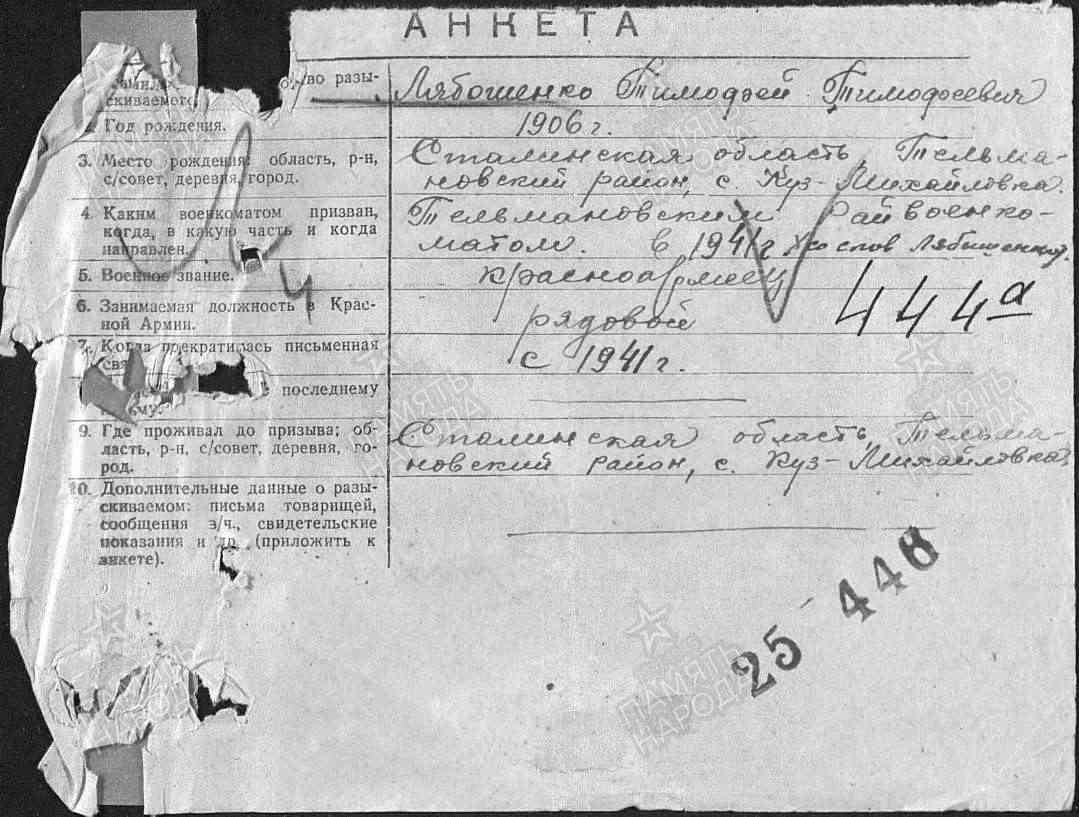 АНКЕТА
во разы-
скиваемого
Лябошенко Тимофей Тимофеевич
2. Год рождения.
1906 г.
3. Место рождения: область, р-н,
с/совет, деревня, город.
Сталинская область, Тельма-
новский район, с. Куз-Михайловка.
4. Каким военкоматом призван,
когда, в какую часть и когда
направлен.
Тельмановским Райвоенко-
матом. в 1941 г слов Лябошенко
5. Военное звание.
красноармеец
444а
6. Занимаемая должность в Крас-
ной Армии.
рядовой
7. Когда прекратилась письменная
с 1941 г.
последнему
9. Где проживал до призыва; об-
ласть, р-н, с/совет, деревня, го-
род.
Сталинская область, Тельма-
новский район, с. Куз-Михайловка
10. Дополнительные данные о разы-
скиваемом: письма товарищей,
сообщения в/ч., свидетельские
показания и др. (приложить к
анкете).
25 446
ПАМЯТЬ
НАРОДА